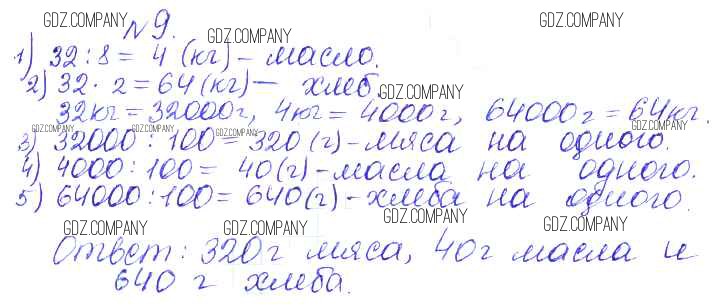 GDZ.COMPANY GDZ.COMPANY GDZ.COMPANY
№ 9.
1) 32 : 8 = 4 (кг) – масло.
GDZ.COMPANY GDZ.COMPANY
2) 32 · 2 = 64 (кг) – хлеб.
GDZ.COMPANY
32кг = 32000г, 4кг = 4000г, 64000г = 64кг.
GDZ.COMPANY GDZ.COMPANY GDZ.COMPANY
3) 32000 : 100 = 320 (г) – мяса на одного.
4) 4000 : 100 = 40 (г) – масла на одного.
5) 64000 : 100 = 640 (г) – хлеба на одного.
GDZ.COMPANY GDZ.COMPANY GDZ.COMPANY GDZ.COMPANY
Ответ: 320г мяса, 40г масла и
640 г хлеба.